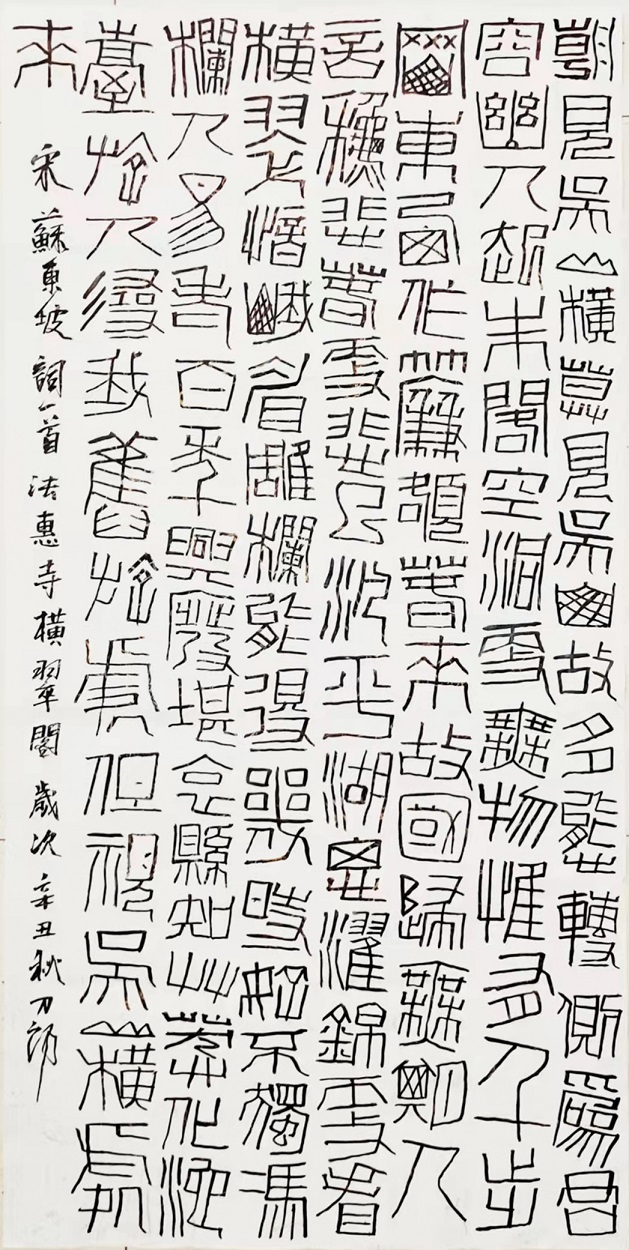 朝見吳山橫暮見吳故多能轉側爲君
容幽人起朱閣空洞更無物惟有千步
岡東西作簾額春來故國歸無期人
言秋悲春更悲已泛平湖思濯錦更看
橫翠憶峨眉雕欄能得幾時好不獨馮
欄人易老百年興廢堪哀縣知草莽化池
臺游人尋我舊游處但視吳山橫處
來
宋蘇東坡詞一首 法惠寺橫翠閣 歲次辛丑秋刀郎